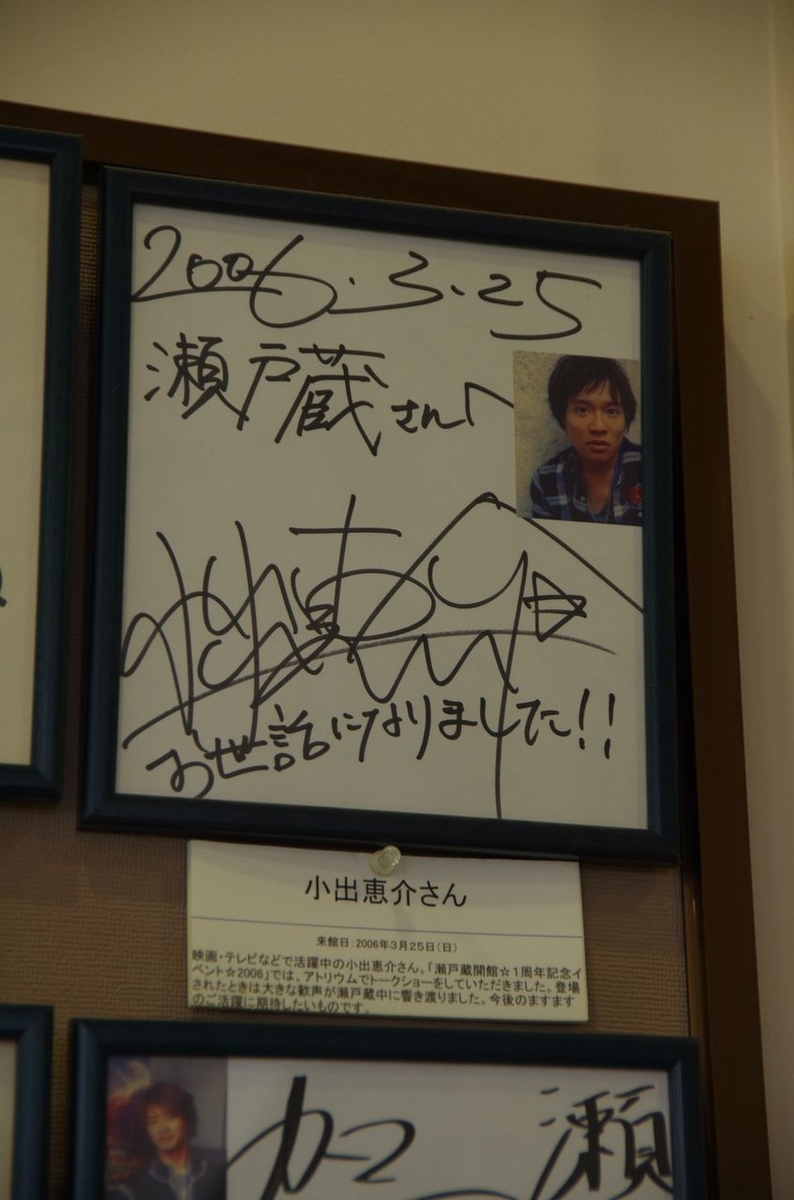 2006.3.25
瀬戸蔵さんへ
小出恵介
お世話になりました!!
小出恵介さん
来館日:2006年3月25日(日)
映画・テレビなどで活躍中の小出恵介さん。「瀬戸蔵開館☆1周年記念イ
ベント☆2006」では、アトリウムでトークショーをしていただきました。登場
されたときは大きな歓声が瀬戸蔵中に響き渡りました。今後のますます
のご活躍に期待したいものです。
瀬